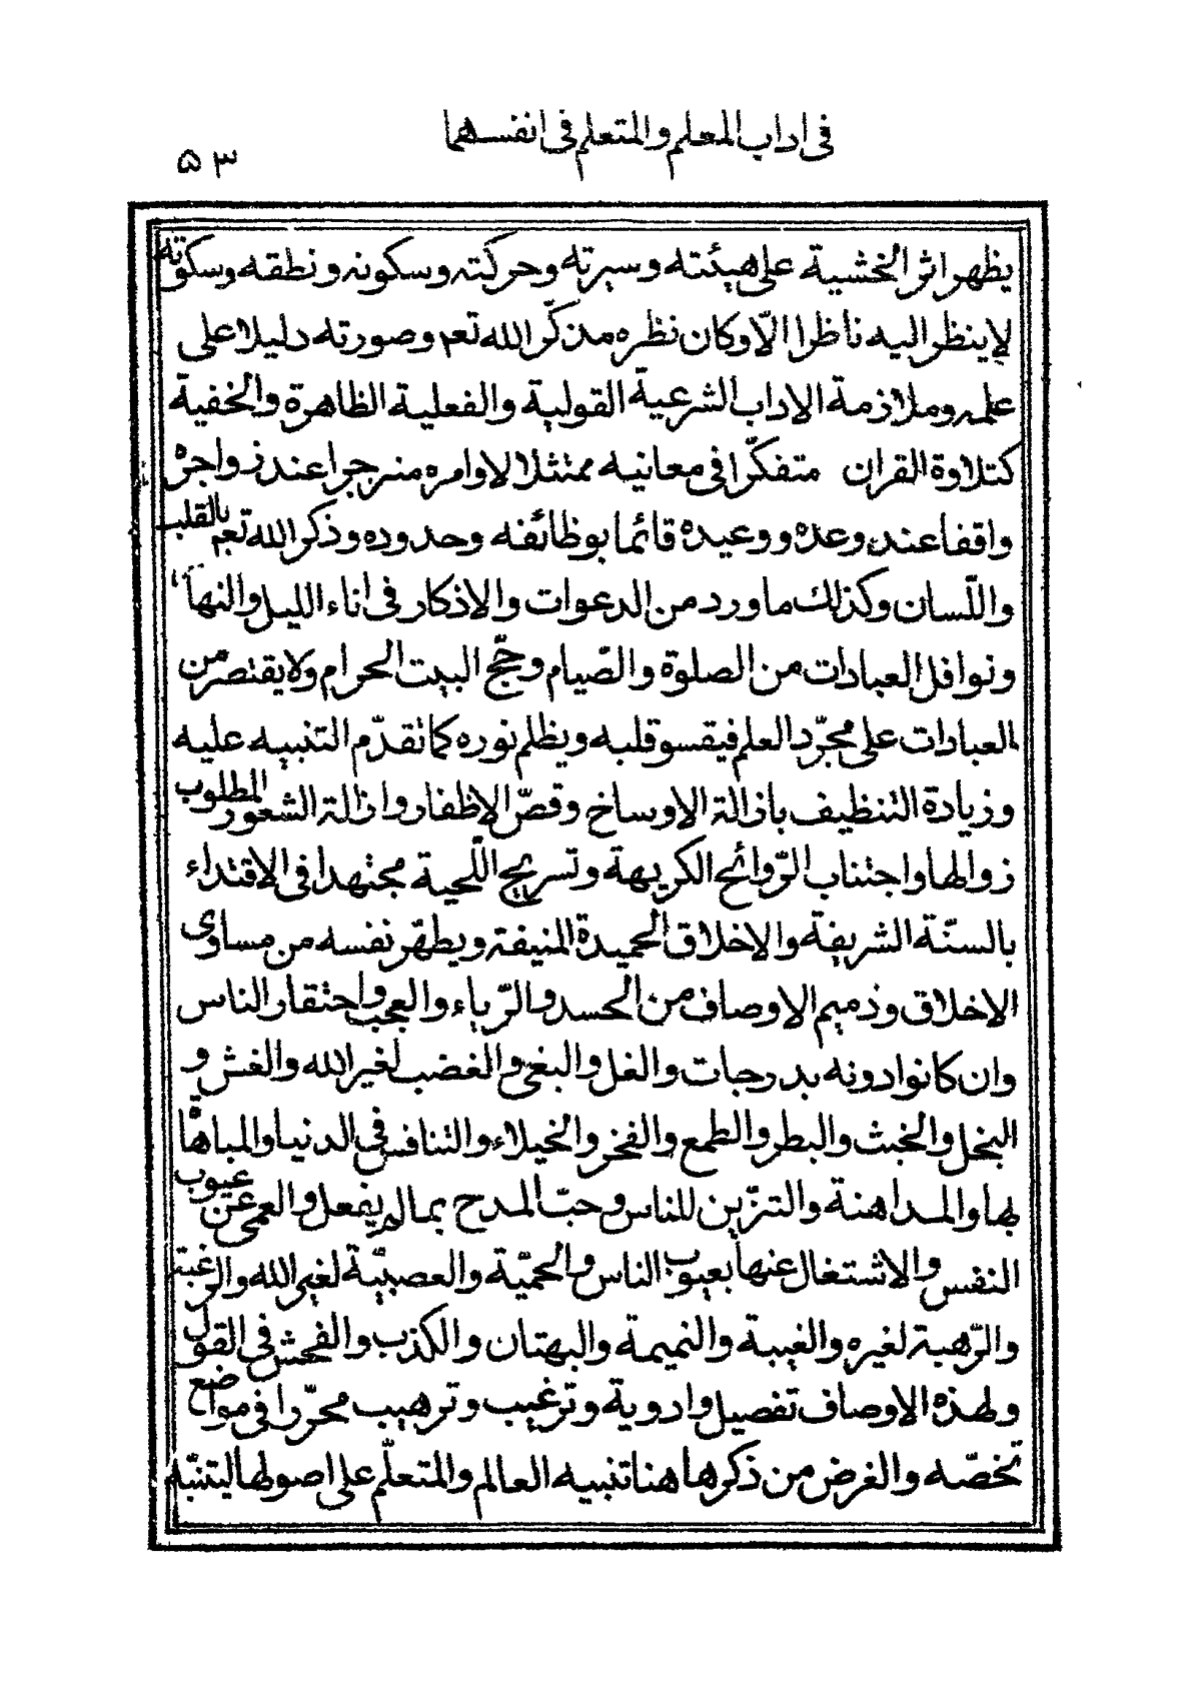 في اداب المعلم والمتعلم في انفسهما
۵۳
يظهر اثر الخشية على هيئته وسيرته وحركته وسكونه ونطقه وسكوته
لا ينظر اليه ناظر الّا وكان نظره مذكّرا لله تعم وصورته دليلا على
علمه وملازمة الاداب الشرعية القولية والفعلية الظاهرة والخفية
كتلاوة القران متفكّرا في معانيه ممتثلا لاوامره منزجرا عند زواجره
واقفا عند وعده ووعيده قائما بوظائفه وحدوده وذكر الله تعم بالقلب
واللّسان وكذلك ما ورد من الدعوات والاذكار في اناء الليل والنهار
ونوافل العبادات من الصلوة والصّيام وحجّ البيت الحرام ولا يقتصر من
العبادات على مجرّد العلم فيقسو قلبه ويظلم نوره كما تقدّم التنبيه عليه
وزيادة التنظيف بازالة الاوساخ وقصّ الاظفار وازالة الشعور المطلوب
زوالها واجتناب الرّوائح الكريهة وتسريح اللّحية مجتهدا في الاقتداء
بالسنّة الشريفة والاخلاق الحميدة المنيفة ويطهّر نفسه من مساوى
الاخلاق وذميم الاوصاف من الحسد والرّياء والعجب واحتقار الناس
وان كانوا دونه بدرجات والغل والبغي والغضب لغير الله والغش و
البخل والخبث والبطر والطمع والفخر والخيلاء والتنافس في الدنيا والمباهاة
بها والمداهنة والتزّين للناس وحبّ المدح بما لم يفعل والعمى عن عيوب
النفس والاشتغال عنها بعيوب الناس والحميّة والعصبيّة لغير الله والرغبة
والرّهبة لغيره والغيبة والنميمة والبهتان والكذب والفحش في القول
ولهذه الاوصاف تفصيل وادوية وترغيب وترهيب محرّرا في مواضع
تخصّه والغرض من ذكرها هنا تنبيه العالم والمتعلّم على اصولها ليتنبّه